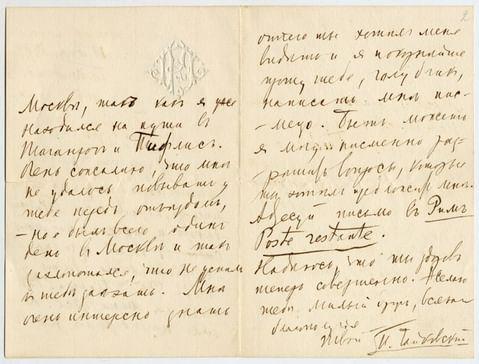 Москвы, такъ какъ я уже
находился на пути въ
Таганрогъ и Тифлисъ.
Очень сожалѣю, что мнѣ
не удалось побывать у
тебя передъ отъѣздомъ,
– но я былъ всего одинъ
день въ Москвѣ и такъ
захлопотался, что не успѣлъ
къ тебѣ заѣхать. Мнѣ
очень интересно узнать
2
отчего ты хотѣлъ меня
видѣть и я покорнѣйше
прошу тебя, голубчикъ,
написать мнѣ пис-
-мецо. Быть можетъ
я могу письменно раз-
рѣшить вопросы, которые
ты хотѣлъ предложить мнѣ.
Адресуй письмо въ Римъ
Poste restante.
Надѣюсь, что ты здоровъ
теперь совершенно. Желаю
тебѣ, милый другъ, всякаго
благополучія
Твой П. Чайковскій